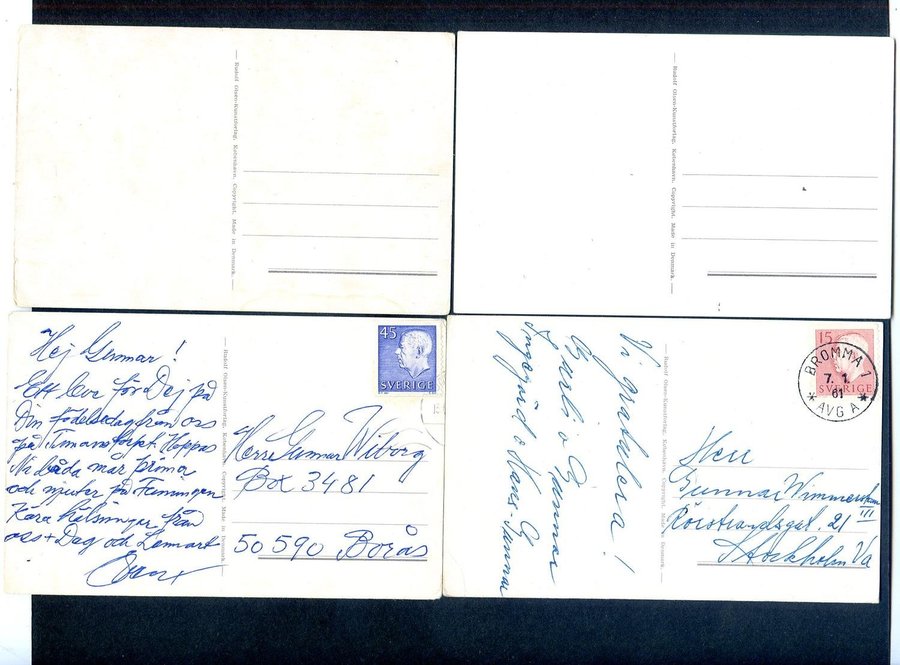 Rudolf Olsen-Kunstforlag, København. Copyright. Made in Denmark.
Rudolf Olsen-Kunstforlag, København. Copyright. Made in Denmark.
Hej Gunnar!
Ett leve för Dej på
Din födelsedag från oss
på Hoppas
Ni båda mår prima
och njuter på
Kära hälsningar från
oss + Dag och Lennart
Rudolf Olsen-Kunstforlag, København. Copyright. Made in Denmark.
45
SVERIGE
Herr Gunnar Wiborg
Box 3481
50 590 Borås
Vi gratulera!
o Gunnar
Ingegerd o Hans-Gunnar
Rudolf Olsen-Kunstforlag, København. Copyright. Made in Denmark.
15
SVERIGE
BROMMA 1
7. 1.
61
* AVG A *
Herr
Gunnar
Rörstrandsgat. 21 III
Stockholm Va